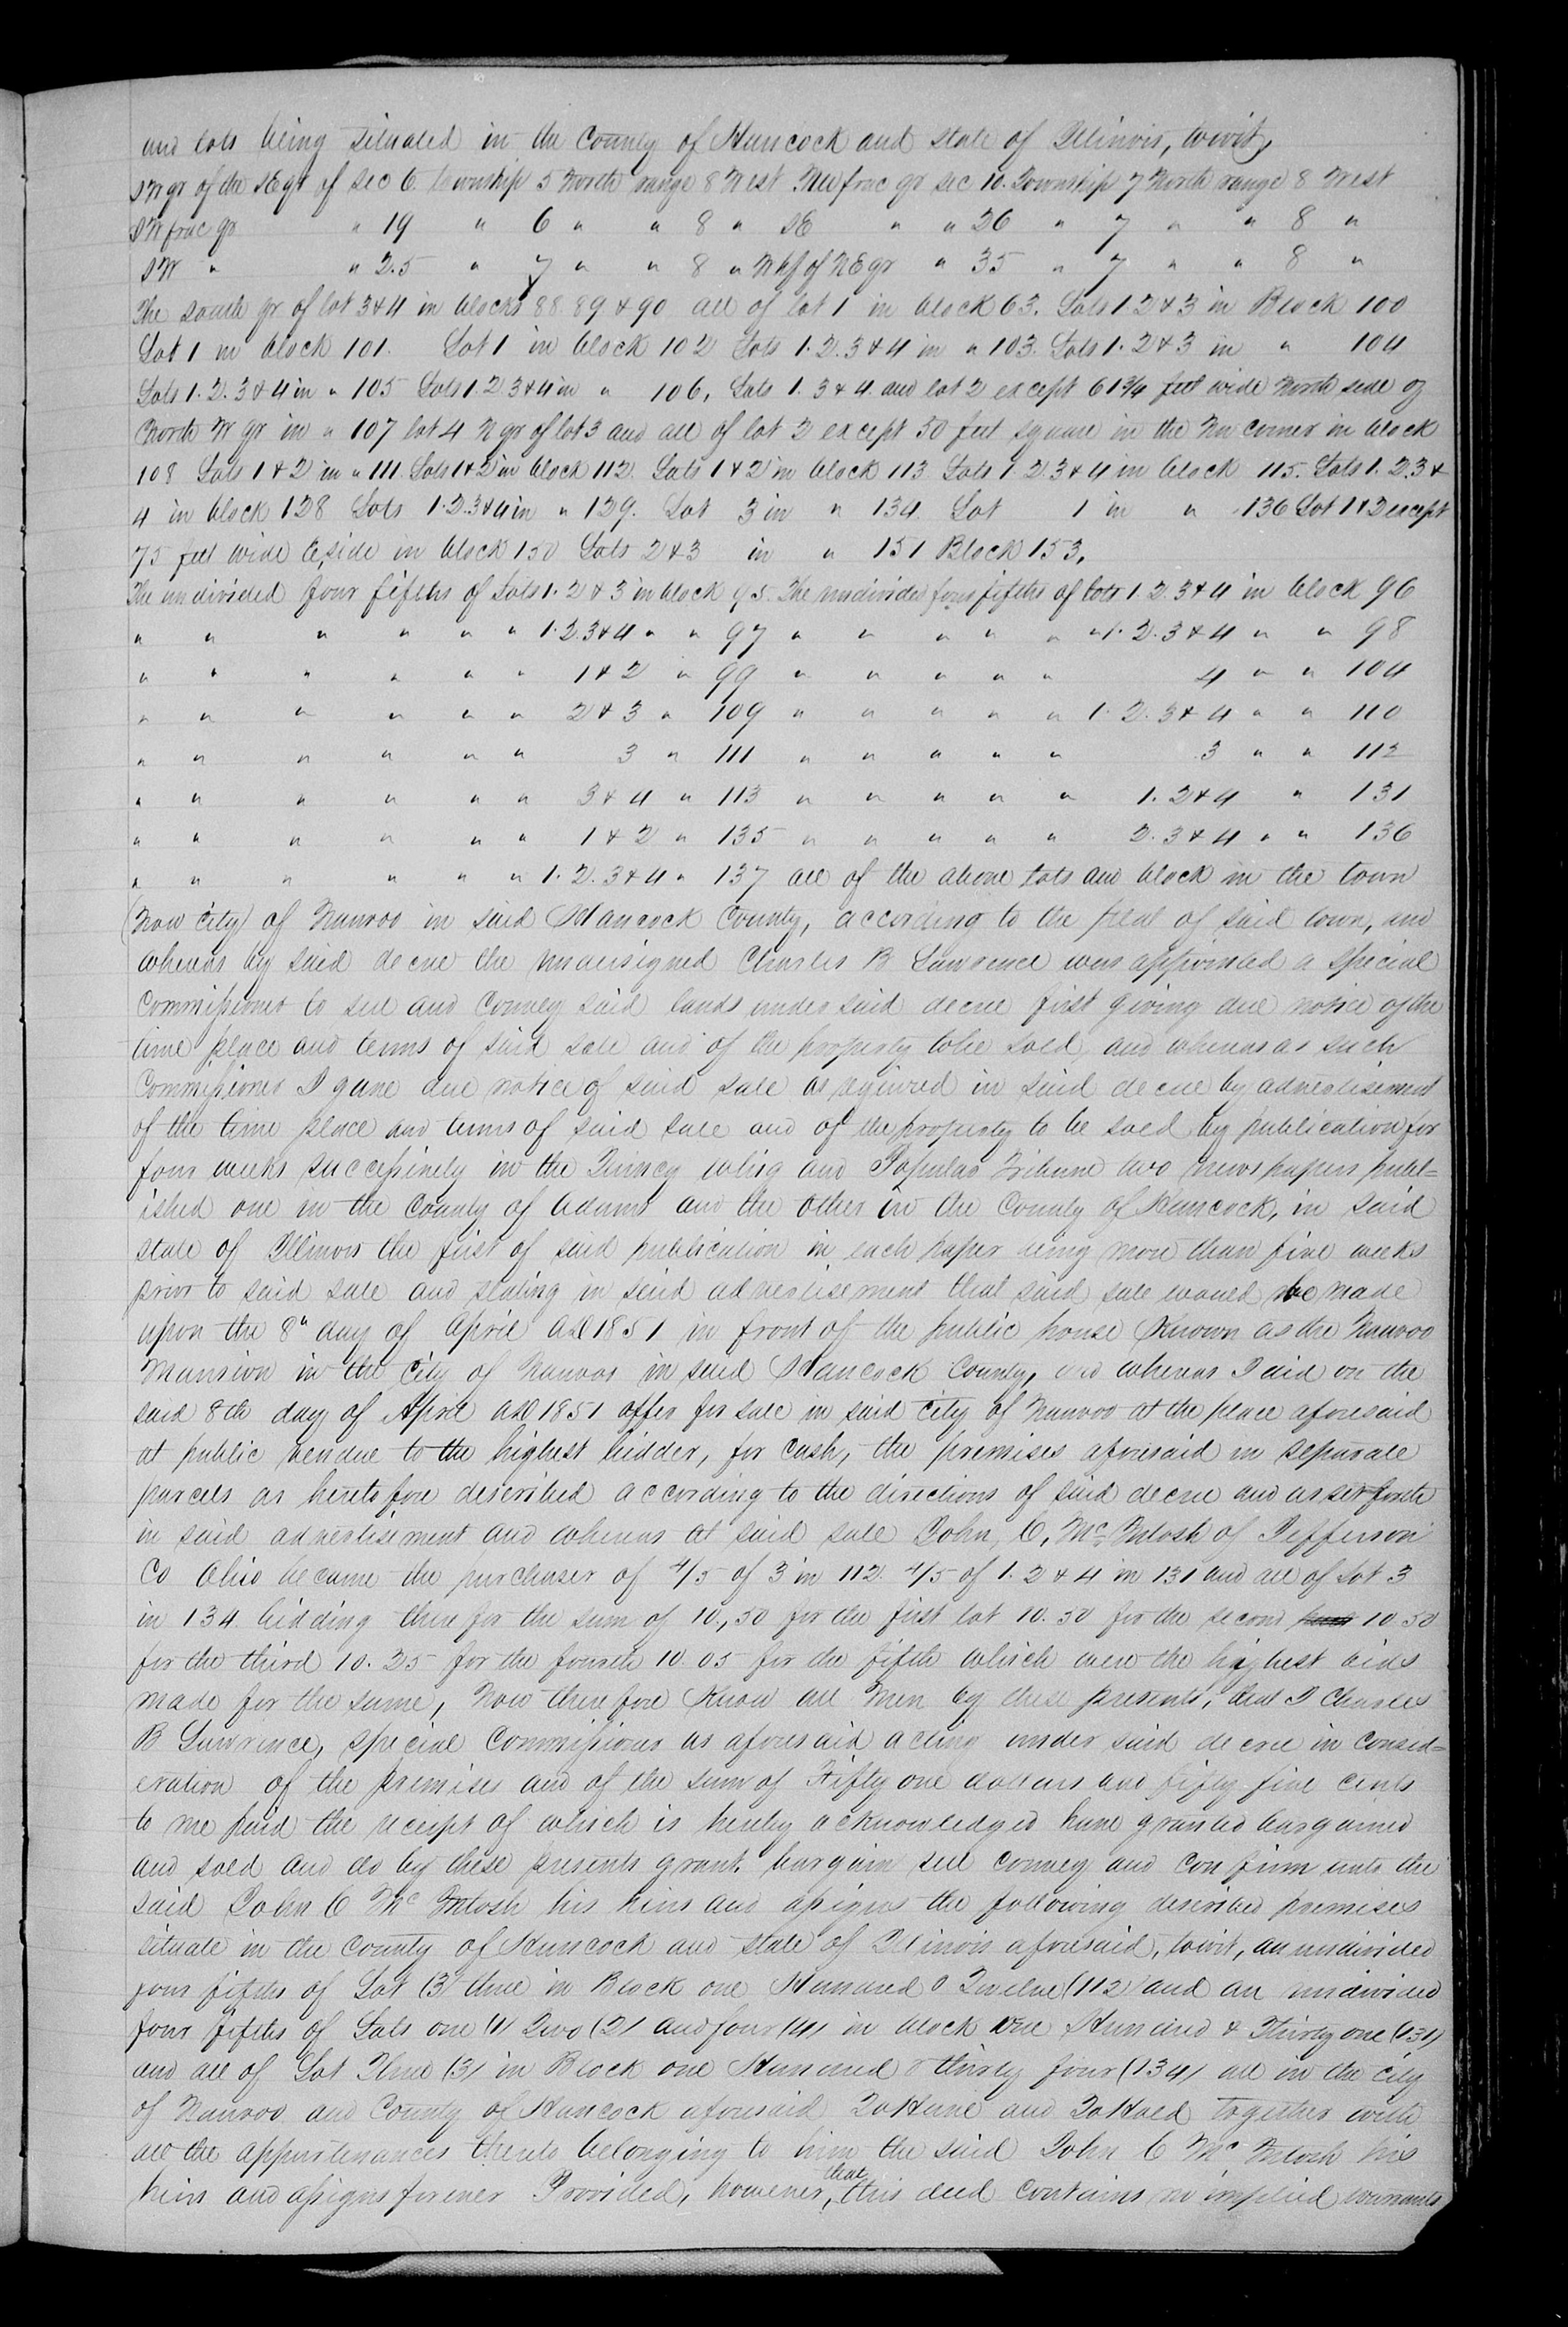 and lots being situated in the County of Hancock and state of Illinois, towit,
SW qr of the SE qr of sec 6. township 5 North range 8 West NW frac qr sec 10. Township 7 North range 8 West
SW frac qr " 19 " 6 " " 8 " SE " " 26 " 7 " " 8 "
SW " " 25 " 7 " " 8 " W hf of NE qr " 35 " 7 " " 8 "
The south qr of lot 3 & 4 in blocks 88. 89 & 90 all of lot 1 in block 63. Lots 1. 2 & 3 in Block 100
Lot 1 in block 101. Lot 1 in block 102 Lots 1. 2. 3 & 4 in " 103. Lots 1. 2 & 3 in " 104
Lots 1. 2. 3 & 4 in " 105 Lots 1. 2 3 & 4 in " 106, Lots 1. 3 & 4. and lot 2 except 61 3/4 feet wide North side of
North W qr in " 107 lot 4 N qr of lot 3 and all of lot 2 except 50 feet square in the NW corner in block
108 Lots 1 & 2 in " 111. Lots 1 & 2 in block 112. Lots 1 & 2 in block 113 Lots 1. 2. 3 & 4 in block 115. Lots 1. 2. 3 &
4 in block 128 Lots 1. 2. 3 & 4 in " 129. Lot 3 in " 134. Lot 1 in " 136 Lot 1 & 2 except
75 feet wide E, side in block 150 Lots 2 & 3 in " 151 Block 153,
The undivided four fifths of Lots 1. 2 & 3 in block 95. The undivided four fifths of lots 1. 2. 3 & 4 in block 96
" " " " " " 1. 2. 3 & 4 " " 97 " " " " " " 1. 2. 3 & 4 " " 98
" " " " " " 1 & 2 " 99 " " " " " 4 " " 104
" " " " " " 2 & 3 " 109 " " " " " 1. 2. 3 & 4 " " 110
" " " " " " 3 " 111 " " " " " 3 " " 112
" " " " " " 3 & 4 " 113 " " " " " 1. 2 & 4 " 131
" " " " " " 1 & 2 " 135 " " " " " 2. 3 & 4 " " 136
" " " " " " 1. 2. 3 & 4 " 137 all of the above lots and block in the town
(Now City) of Nauvoo in said Hancock County, according to the plat of said town, and
whereas by said decree the undersigned Charles B Lawrence was appointed a special
Commissioner to sell and Convey said lands under said decree first giving due notice of the
time place and terms of said sale and of the property to be sold, and whereas as such
Commissioner I gave due notice of said sale as required in said decree by advertisement
of the time place and terms of said sale and of the property to be sold by publication for
four weeks successively in the Quincy Whig and Popular Tribune two newspapers publ=
ished one in the County of Adams and the other in the County of Hancock, in said
state of Illinois the first of said publication in each paper being more than five weeks
prior to said sale and stating in said advertisement that said sale would be made
upon the 8" day of April AD 1851 in front of the public house Known as the Nauvoo
Mansion in the City of Nauvoo in said Hancock County, and whereas I did on the
said 8th day of April AD 1851 offer for sale in said City of Nauvoo at the place aforesaid
at public vendue to the highest bidder, for Cash, the premises aforesaid in separate
parcels as heretofore described according to the directions of said decree and as set forth
in said advertisement and whereas at said sale John, C, McIntosh of Jefferson
Co Ohio became the purchaser of 4/5 of 3 in 112. 4/5 of 1. 2 & 4 in 131 and all of Lot 3
in 134. bidding there for the sum of 10,,50 for the first lot 10. 50 for the second 10.50
for the third 10. 25 for the fourth 10.05 for the fifth which were the highest bids
made for the same, Now therefore Know all Men by these presents, that I Charles
B Lawrence, special Commissioner as aforesaid acting under said decree in Consid=
eration of the premises and of the sum of Fifty one dollars and fifty five cents
to me paid the receipt of which is hereby acknowledged have granted bargained
and sold and do by these presents grant. bargain sell convey and confirm unto the
said John C McIntosh his heirs and assigns the following described premises
situate in the County of Hancock and state of Illinois aforesaid, towit, an undivided
four fifths of Lot (3) three in Block one Hundred & Twelve (112) and an undivided
four fifths of Lots one (1) Two (2) and four (4) in block one Hundred & Thirty one (131)
and all of Lot Three (3) in Block one Hundred & thirty four (134) all in the City
of Nauvoo and County of Hancock aforesaid To Have and To Hold together with
all the appurtenances thereto belonging to him the said John C McIntosh his
heirs and assigns forever Provided, however, that this deed contains no implied warrants